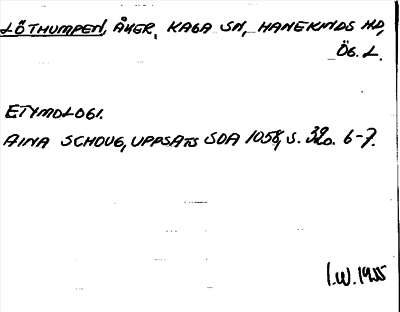 LÖTHUMPEN, ÅKER, KAGA SN, HANEKINDS HD,
ÖG. L.
ETYMOLOGI.
AINA SCHOUG, UPPSATS SOA 1058, S. 39o. 6-7.
I.W. 1955